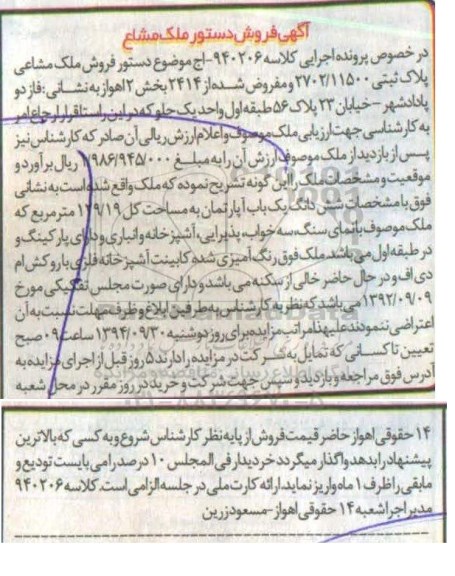 آگهی فروش دستور ملک مشاع
در خصوص پرونده اجرایی کلاسه ۹۴۰۲۰۶-اج موضوع دستور فروش ملک مشاعی
پلاک ثبتی ۲۷۰۲/۱۱۵۰۰ ومفروض شده از ۲۴۱۴ بخش ۲ اهواز به نشانی: فاز دو
پادادشهر – خیابان ۲۳ پلاک ۵۶ طبقه اول واحد یک جلو که در این راستا قرار ارجاع امر
به کارشناسی جهت ارزیابی ملک موصوف واعلام ارزش ریالی آن صادر که کارشناس نیز
پس از بازدید از ملک موصوف ارزش آن را به مبلغ ۱/۹۸۶/۹۴۵/۰۰۰ ریال برآورد و
موقعیت و مشخصات ملک را این گونه تشریح نموده که ملک واقع شده است به نشانی
فوق با مشخصات شش دانگ یک باب آپارتمان به مساحت کل ۱۲۹/۱۹ مترمربع که
ملک موصوف بانمای سنگ، سه خواب، پذیرایی، آشپزخانه وانباری ودارای پارکینگ و
در طبقه اول می باشد. ملک فوق رنگ آمیزی شده کابینت آشپزخانه فلزی باروکش ام
دی اف ودر حال حاضر خالی از سکنه می باشد و دارای صورت مجلس تفکیکی مورخ
۱۳۹۲/۰۹/۰۹ می باشد که نظر به کارشناس به طرفین ابلاغ وظرف مهلت نسبت به آن
اعتراضی ننمودند علیهذا مراتب مزایده برای روز دوشنبه ۱۳۹۴/۰۹/۳۰ ساعت ۰۹ صبح
تعیین تا کسانی که تمایل به شرکت در مزایده را دارند ۵ روز قبل از اجرای مزایده به
آدرس فوق مراجعه و بازدید و سپس جهت شرکت و خرید در روز مقرر در محل شعبه
۱۴ حقوقی اهواز حاضر قیمت فروش از پایه نظر کارشناس شروع و به کسی که بالاترین
پیشنهاد را بدهد واگذار میگردد خریدار فی المجلس ۱۰ درصد را می بایست تودیع و
مابقی را ظرف ۱ ماه واریز نماید ارائه کارت ملی در جلسه الزامی است. کلاسه ۹۴۰۲۰۶
مدیر اجرا شعبه ۱۴ حقوقی اهواز-مسعود زرین